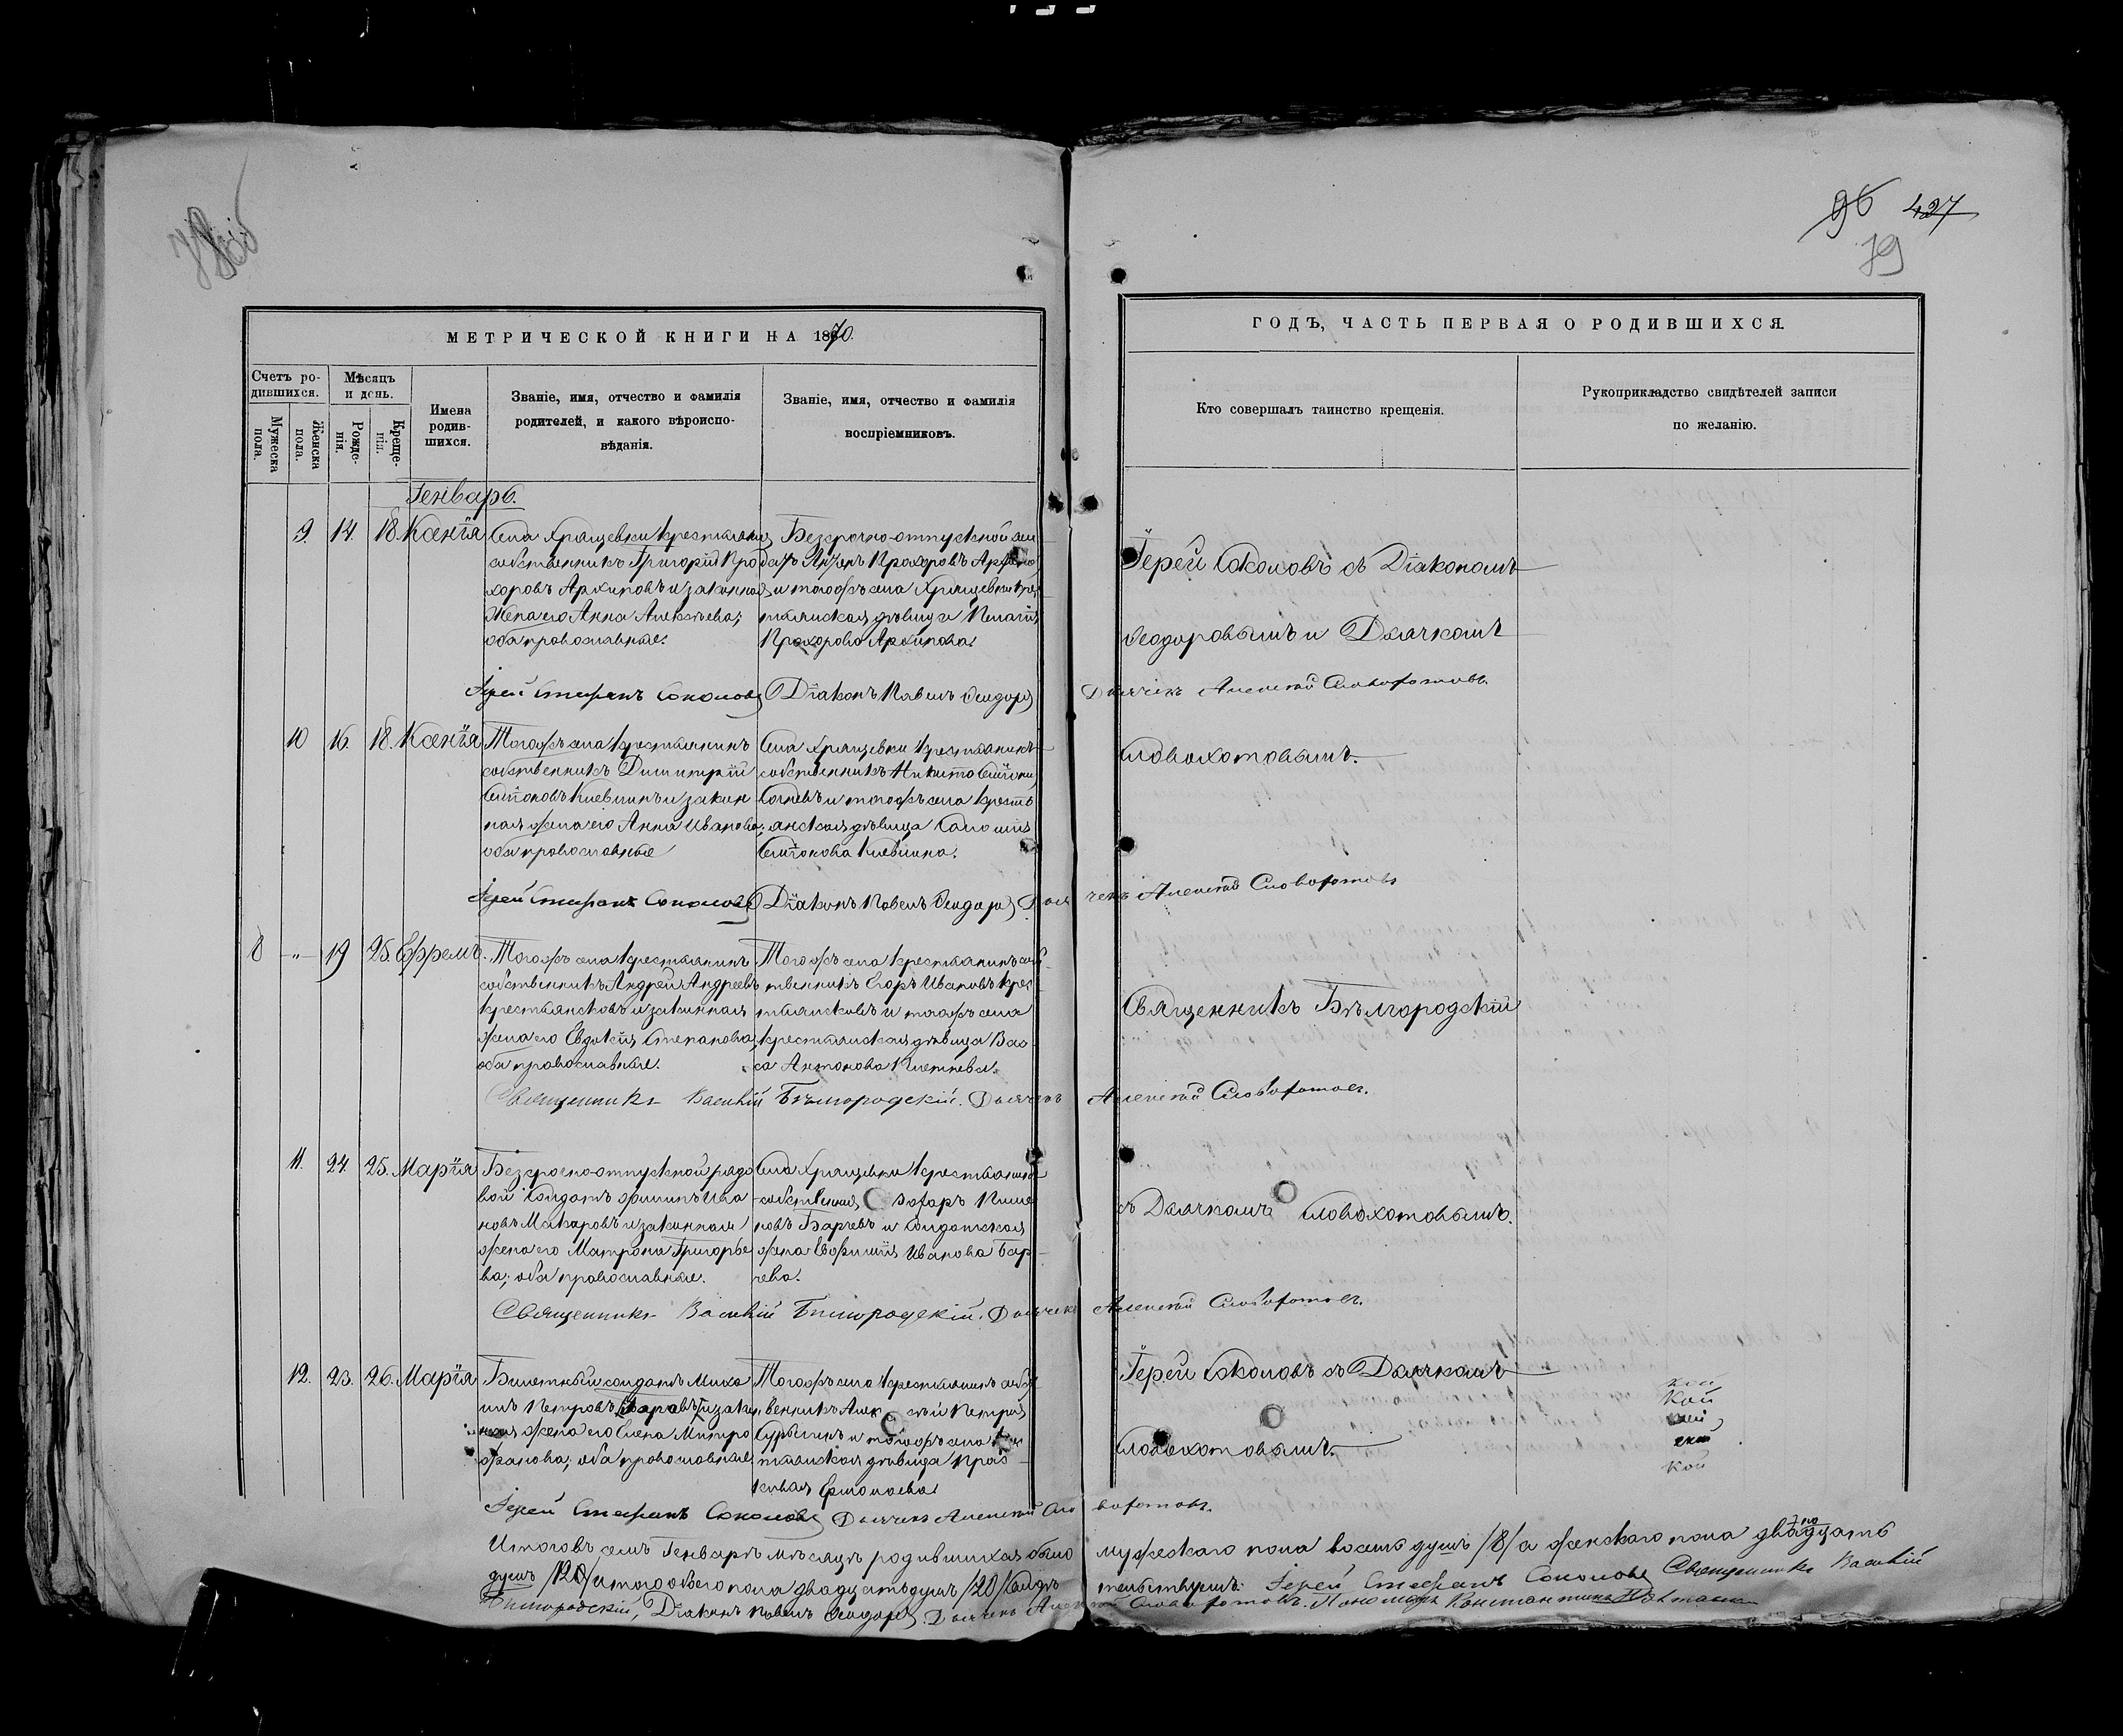 96 427
79
МЕТРИЧЕСКОЙ КНИГИ НА 1870.
Счетъ ро-
дившихся.
Мужеска пола.
Женска пола.
Мѣсяцъ
и день.
Рожде-
нія.
Креще-
нія.
Имена
родив-
шихся.
Званіе, имя, отчество и фамилія
родителей, и какого вѣроиспо-
вѣданія.
Званіе, имя, отчество и фамилія
воспріемниковъ.
ГОДЪ, ЧАСТЬ ПЕРВАЯ О РОДИВШИХСЯ.
Кто совершалъ таинство крещенія.
Рукоприкладство свидѣтелей записи
по желанію.
Генварь.
9. 14. 18. Ксенія
Села Хрящевки крестьянинъ
собственникъ Григорій Про
хоровъ Архиповъ и законная
жена его Анна Алексѣева;
оба православные.
Безсрочно-отпускной
Прохоровъ
и тогожъ села Хрящевки крес
тьянская дѣвица Пелагія
Прохорова Архипова.
Іерей Соколовъ съ Діакономъ
Ѳеодоровымъ и Дьячкомъ
Іерей Стефанъ Соколовъ Діаконъ Павелъ Ѳеодоровъ Дьячекъ Алексѣй Словохотовъ.
10 16. 18. Ксенія
Тогожъ села крестьянинъ
собственникъ Димитрій
Симіоновъ и закон
ная жена его Анна Иванова;
оба православные
Села Хрящевки крестьянинъ
собственникъ Никита
и тогожъ села кресть
янская дѣвица
Симіонова
Словохотовымъ.
Іерей Стефанъ Соколовъ Діаконъ Павелъ Ѳеодоровъ Дьячекъ Алексѣй Словохотовъ
8 " 19 25. Ефремъ.
Тогожъ села крестьянинъ
собственникъ Андрей Андреевъ
Крестьянсковъ и законная
жена его Евдокія Степанова;
оба православные.
Тогожъ села крестьянинъ соб
твенникъ Егоръ Ивановъ Крес
тьянсковъ и тогожъ села
крестьянская дѣвица Вас
са Антонова
Священникъ Бѣлгородскій
Священникъ Василій Бѣлгородскій. Дьячекъ Алексѣй Словохотовъ.
11. 24. 25. Марія
Безсрочно-отпускной рядо
вой солдатъ Филипъ Ива
новъ Макаровъ и законная
жена его Матрона Григорье
ва; оба православные.
Села Хрящевки крестьянинъ
собственникъ
и солдатская
жена Иванова Бар
чева.
съ Дьячкомъ Словохотовымъ.
Священникъ Василій Бѣлгородскій. Дьячекъ Алексѣй Словохотовъ.
12. 23. 26. Марія
Билетный солдатъ Миха
илъ Петровъ и закон
ная жена его Елена Митро
фанова; оба православные
Тогожъ села крестьянинъ собст
венникъ Алексѣй Петровъ
и тогожъ села крес
тьянская дѣвица Прас
ковья Ермолаева
Іерей Соколовъ съ Дьячкомъ
Словохотовымъ.
кой
кой
Іерей Стефанъ Соколовъ Дьячекъ Алексѣй Словохотовъ.
Итого въ семъ Генварѣ мѣсяцѣ родившихся было мужескаго пола восемь душъ /8/ а женскаго пола двѣнадцать
душъ /12/ итого обоего пола двадцать душъ /20/ Свидѣтельствуемъ: Іерей Стефанъ Соколовъ Священникъ Василій
Бѣлгородскій, Діаконъ Павелъ Ѳеодоровъ. Дьячекъ Алексѣй Словохотовъ. Пономарь Константинъ